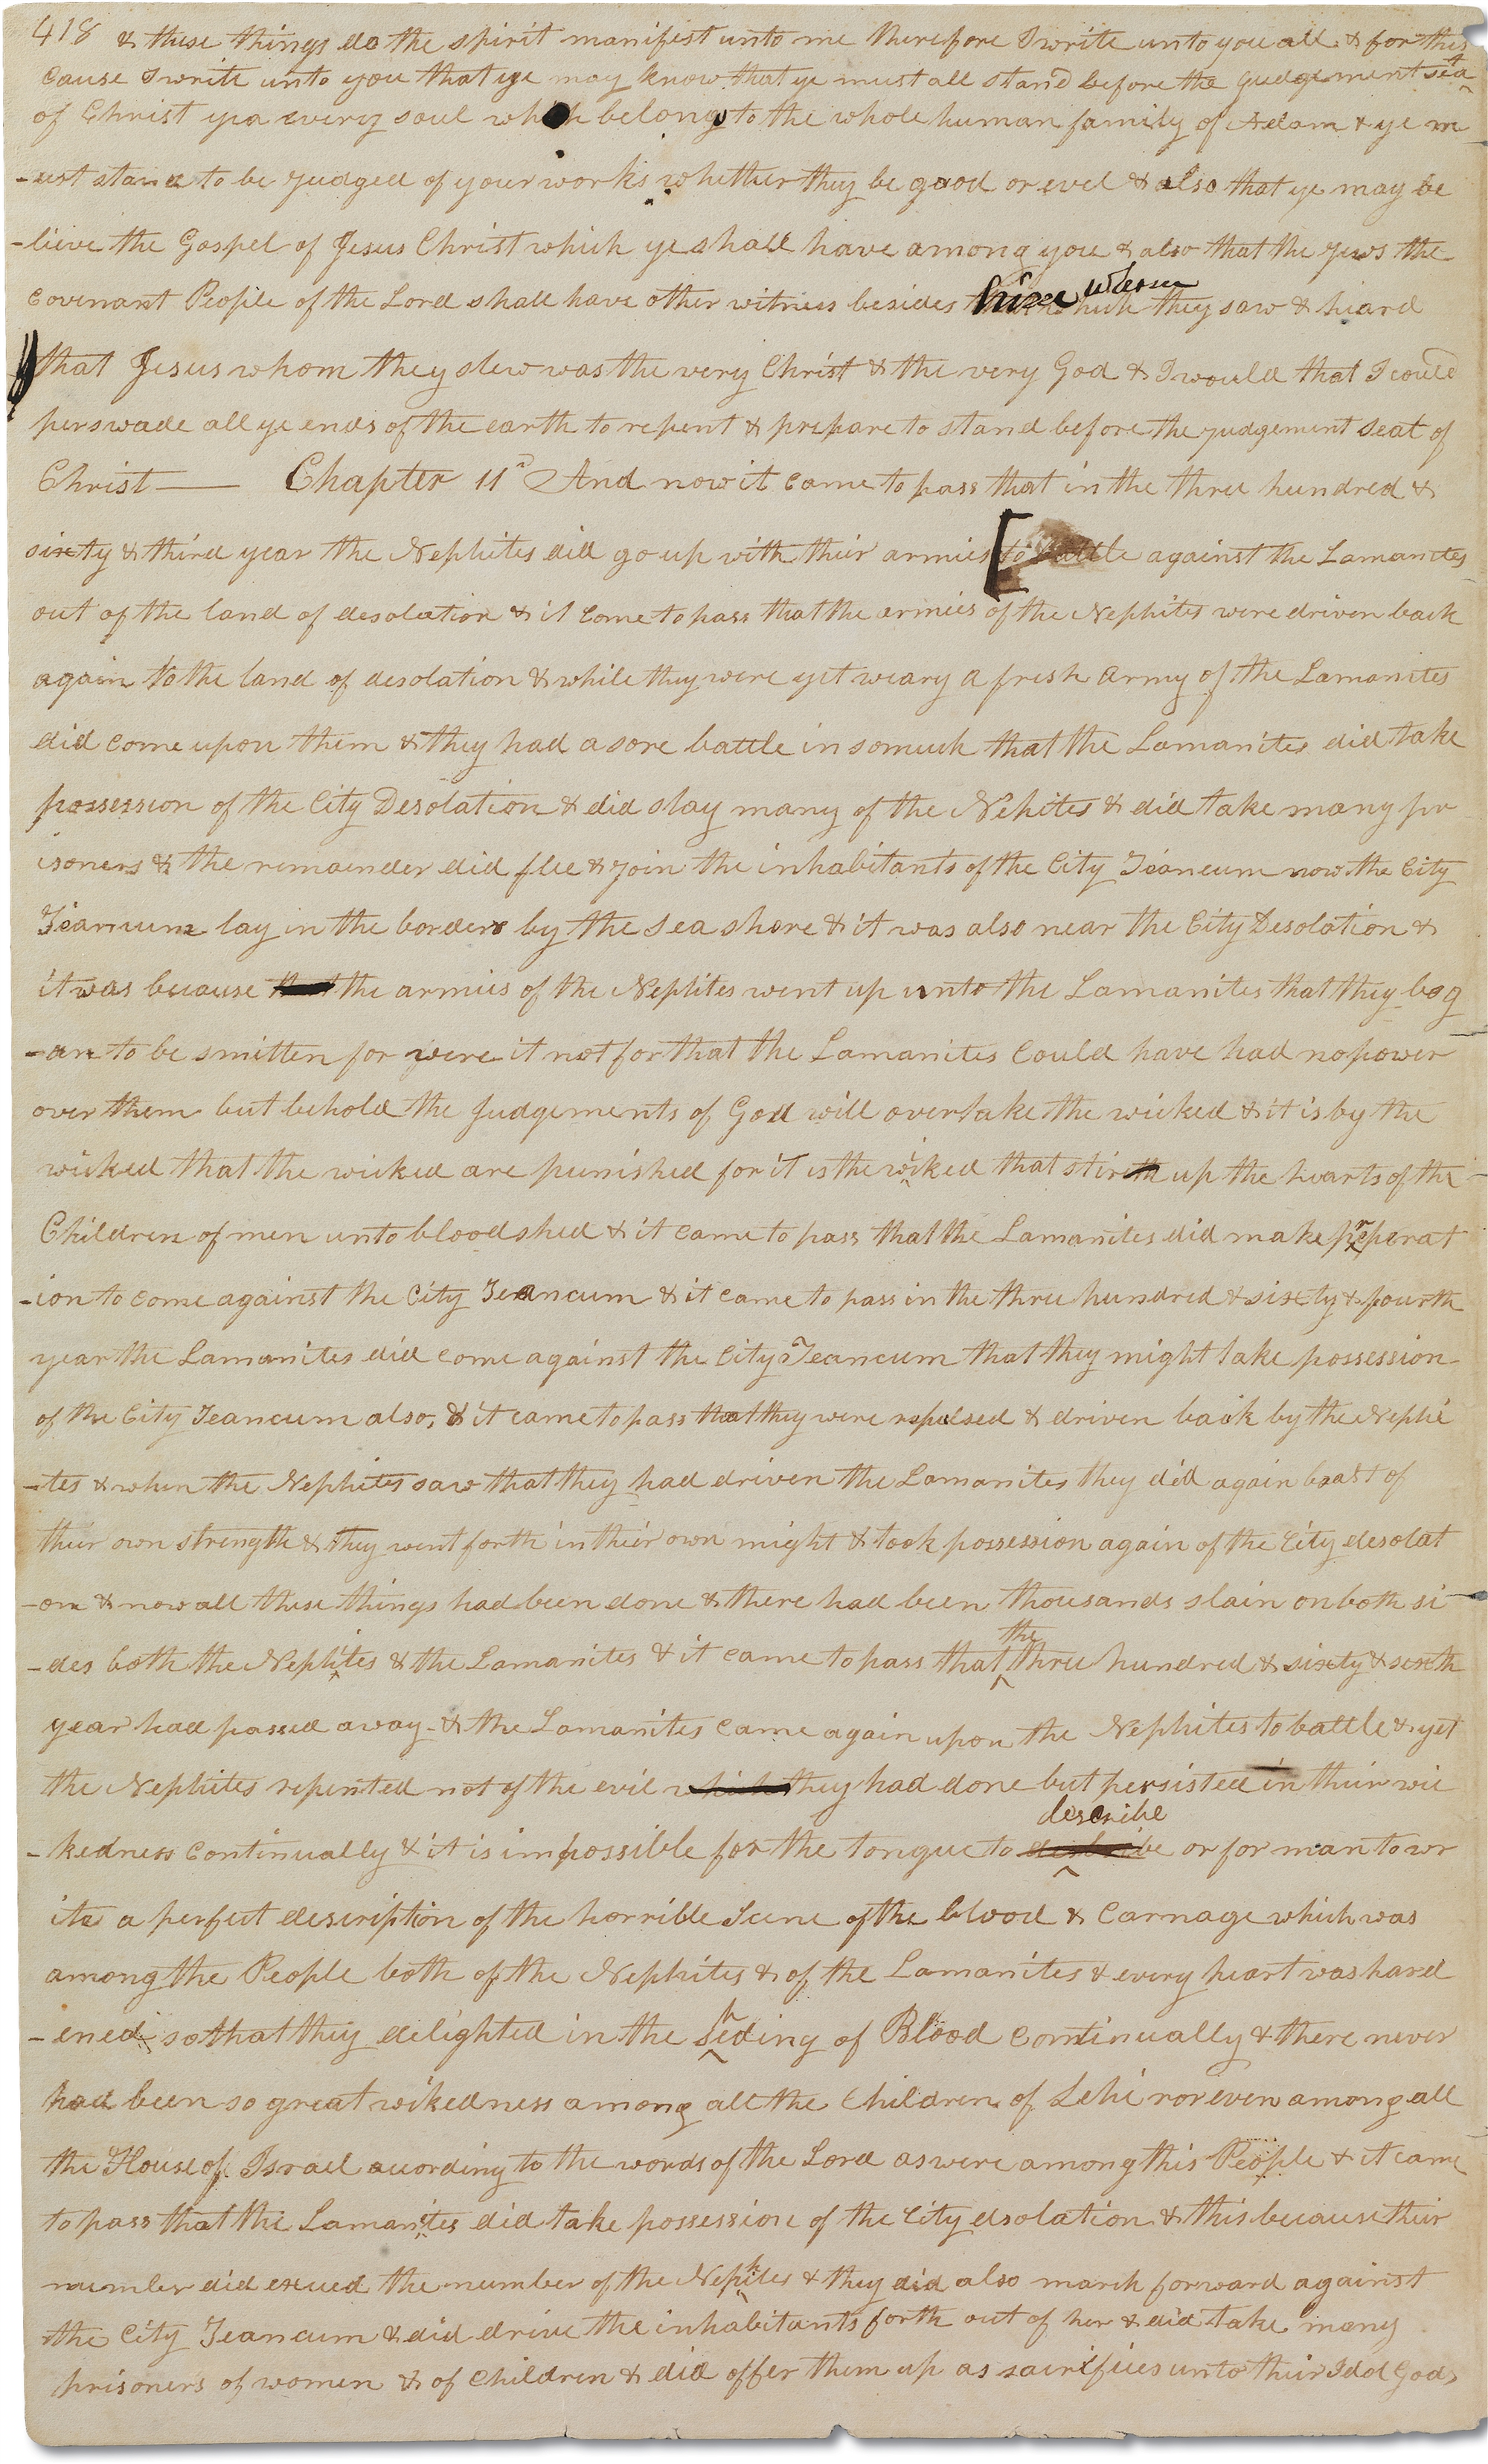 418 & these things do the spirit manifest unto me therefore I write unto you all & for this
cause I write unto you that ye may know that ye must all stand before the judgement seat
of Christ yea every soul who belong to the whole human family of Adam & ye m
-ust stand to be judged of your works whether they be good or evel & also that ye may be
-lieve the Gospel of Jesus Christ which ye shall have among you & also that the jews the
covenant People of the Lord shall have other witness besides him whom they saw & heard
that Jesus whom they slew was the very Christ & the very God & I would that I could
perswade all ye ends of the earth to repent & prepare to stand before the judgement seat of
Christ — Chapter 11d And now it came to pass that in the three hundred &
sixty & third year the Nephites did go up with their armies [to battle against the Lamanites
out of the land of desolation & it come to pass that the armies of the Nephites were driven back
again to the land of desolation & while they were yet weary a fresh army of the Lamanites
did come upon them & they had a sore battle in somuch that the Lamanites did take
possession of the City Desolation & did slay many of the Nehites & did take many pr
isoners & the remainder did flee & join the inhabitants of the City Teancum now the City
Teancum lay in the borders by the sea shore & it was also near the City Desolation &
it was because that the armies of the Nephites went up unto the Lamanites that they beg
-an to be smitten for were it not for that the Lamanites could have had no power
over them but behold the judgements of God will overtake the wicked & it is by the
wicked that the wicked are punished for it is the wicked that stireth up the hearts of the
Children of men unto bloodshed & it came to pass that the Lamanites did make preperat
-ion to come against the City Teancum & it came to pass in the three hundred & sixty & fourth
year the Lamanites did come against the City Teancum that they might take possession
of the City Teancum also, & it came to pass that they were repulsed & driven back by the Nephi
-tes & when the Nephites saw that they had driven the Lamanites they did again boast of
their own strength & they went forth in their own might & took possession again of the City desolat
-on & now all these things had been done & there had been thousands slain on both si
-des both the Nephites & the Lamanites & it came to pass that the three hundred & sixty & sixth
year had passed away & the Lamanites came again upon the Nephites to battle & yet
the Nephites repented not of the evil which they had done but persisted in their wic
-kedness continually & it is impossible for the tongue to describe or for man to wr
ite a perfect description of the horrible Scene of the blood & carnage which was
among the People both of the Nephites & of the Lamanites & every heart was hard
-ened so that they delighted in the sheding of Blood continually & there never
had been so great wikedness among all the Children of Lehi nor even among all
the House of Israel acording to the words of the Lord as were among this People & it came
to pass that the Lamanites did take possession of the City dsolation & this because their
number did exceed the number of the Nephites & they did also march forward against
the City Teancum & did drive the inhabitants forth out of her & did take many
prisoners of women & of children & did offer them up as sacrifices unto their Idol Gods